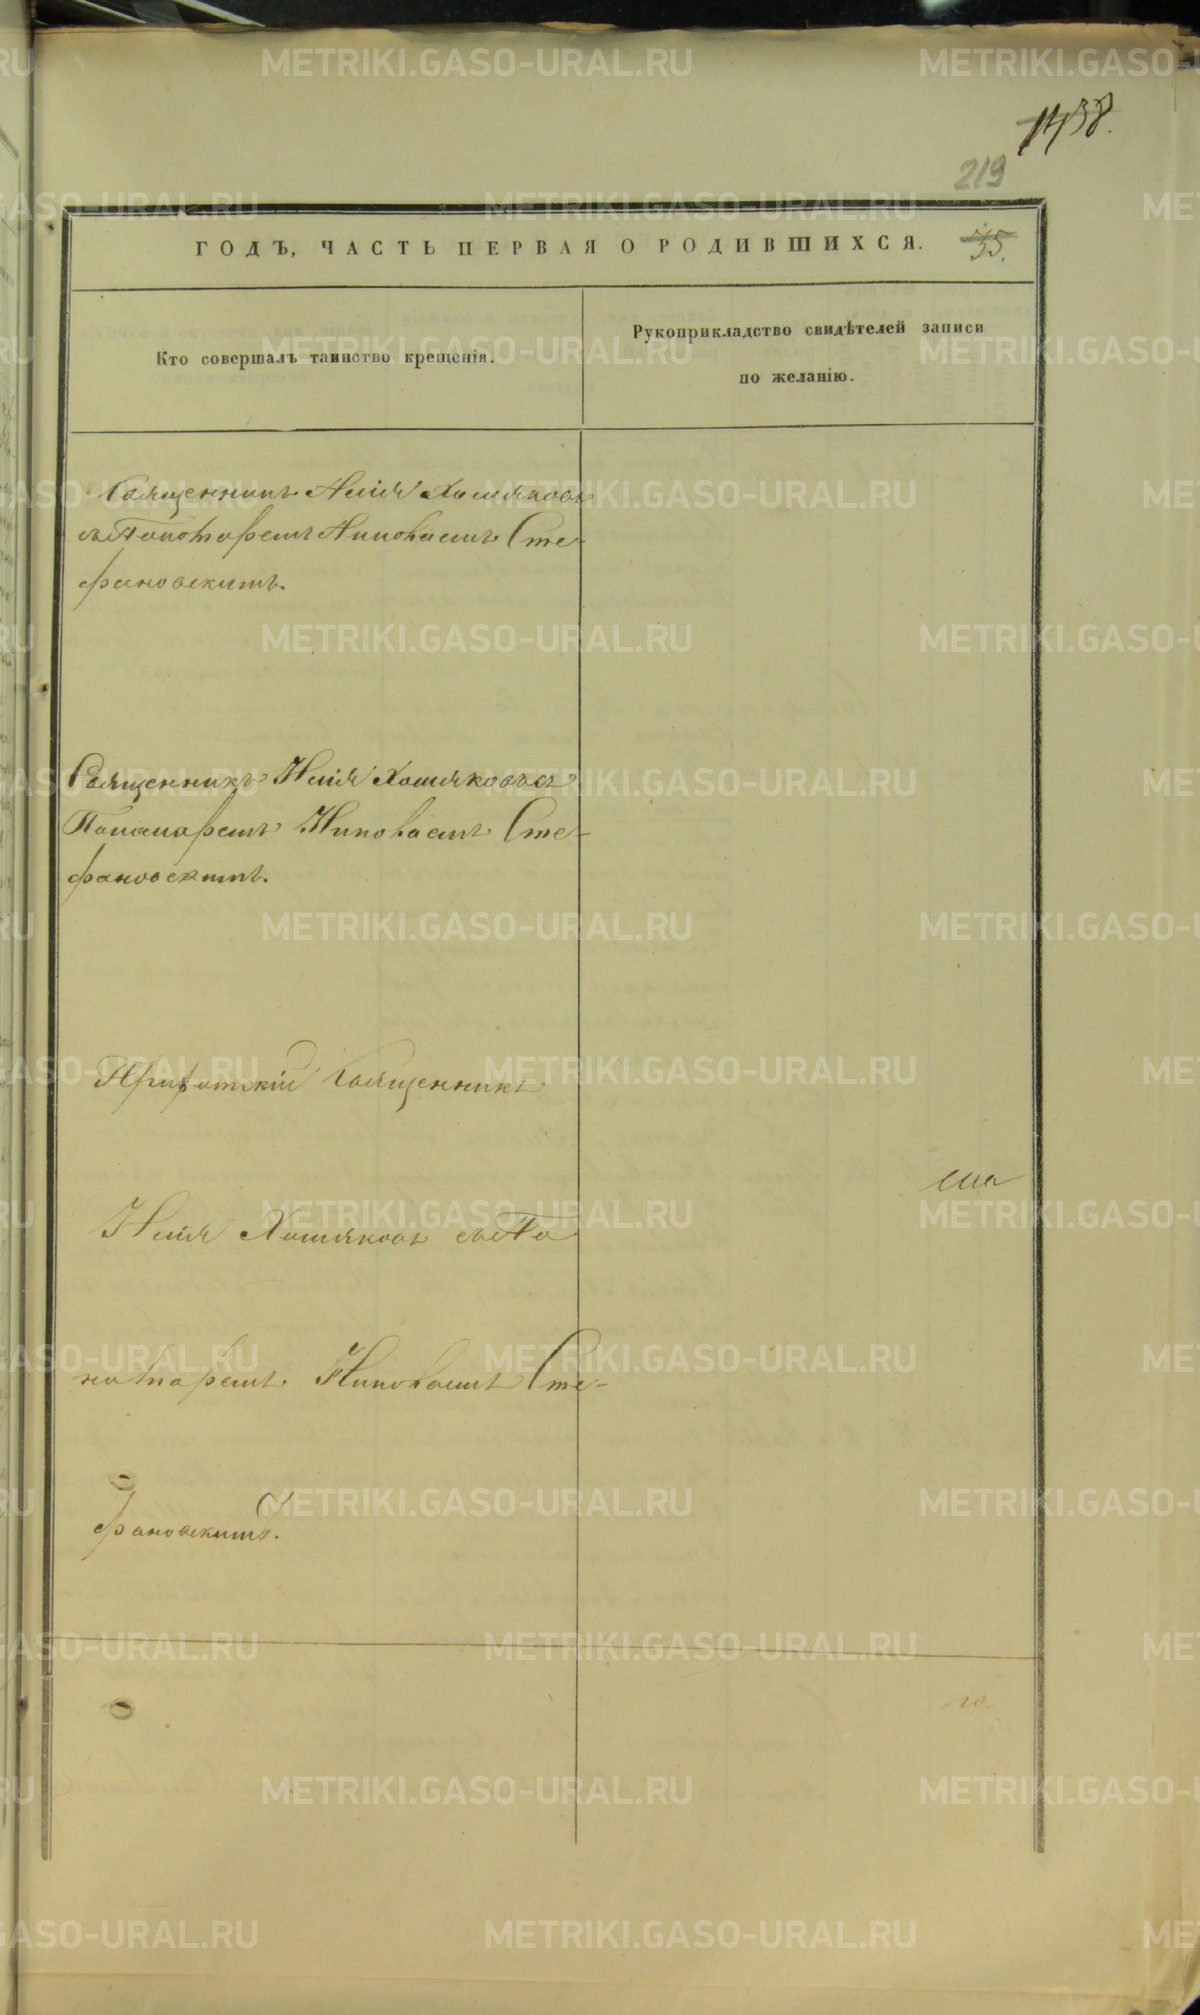 1438.
219
ГОДЪ, ЧАСТЬ ПЕРВАЯ О РОДИВШИХСЯ. 35.
Кто совершалъ таинство крещенія.
Рукоприкладство свидѣтелей записи
по желанію.
Священникъ Илія Хомяковъ
съ Пономаремъ Николаемъ Сте-
фановскимъ.
Священникъ Илія Хомяковъ съ
Пономаремъ Николаемъ Сте-
фановскимъ.
Приходскій Священникъ
Илія Хомяковъ съ По
номаремъ Николаемъ Сте-
фановскимъ.
METRIKI.GASO-URAL.RU